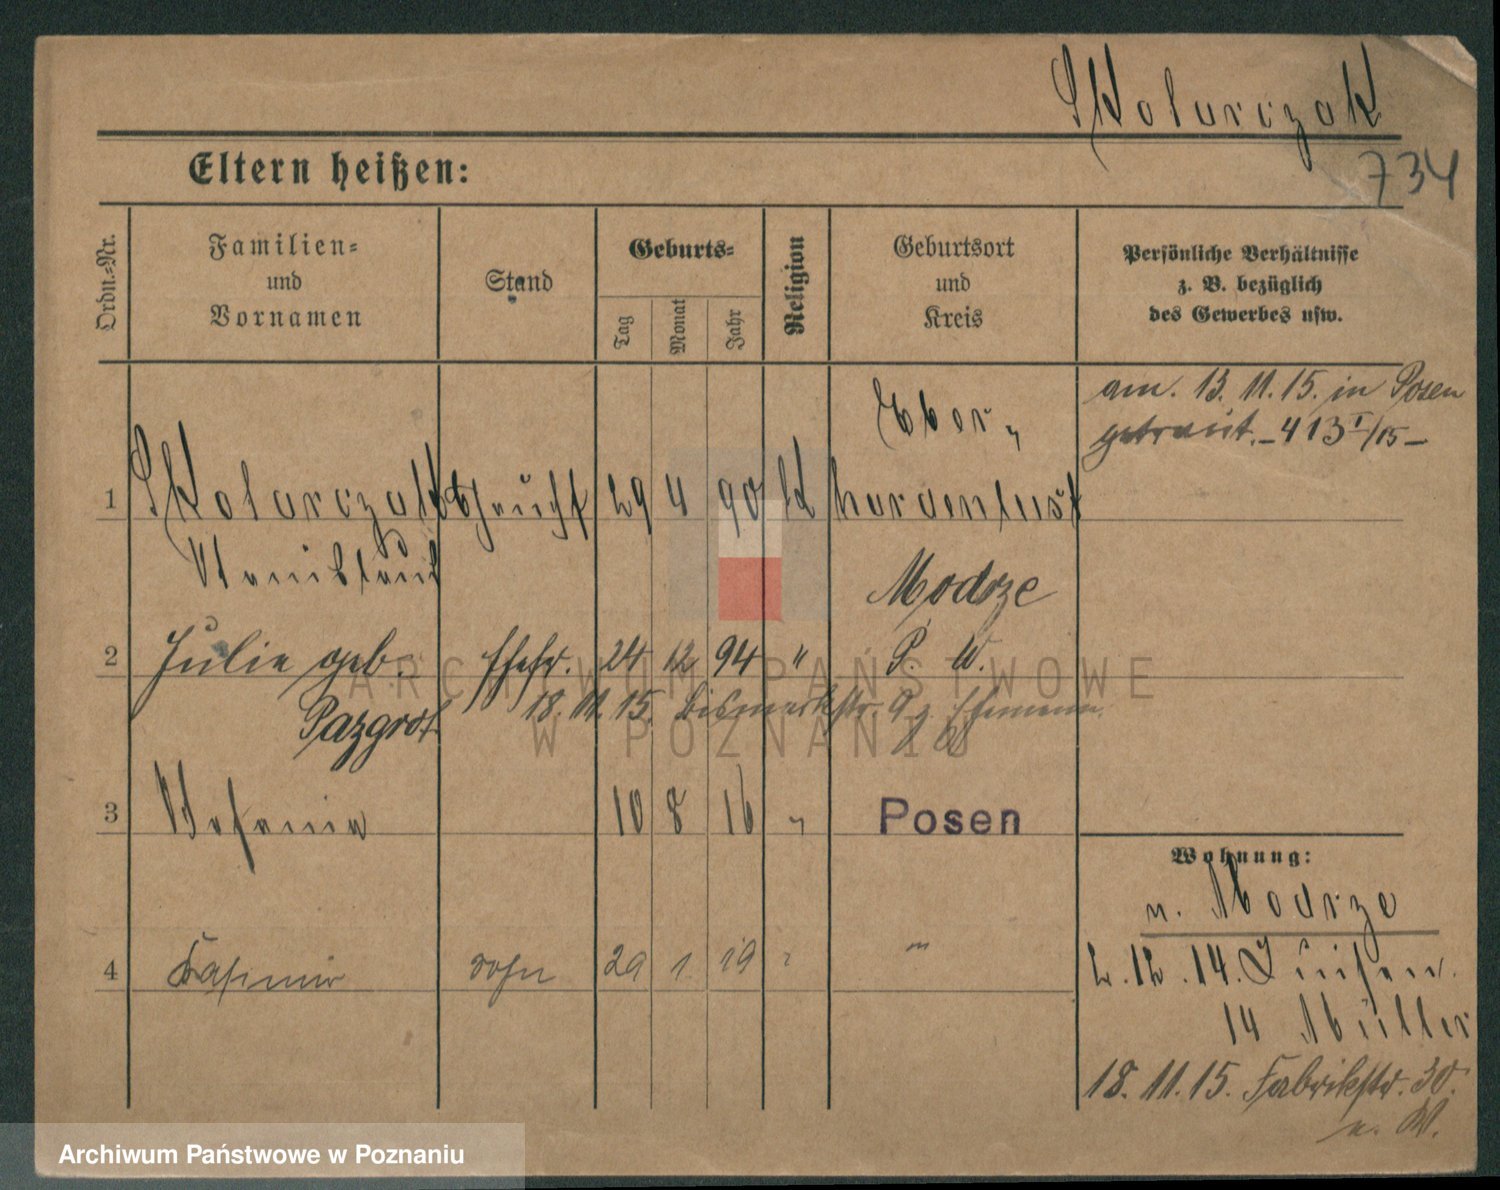 Skolarczak
734
Eltern heißen:
Ordn.-Nr.
Familien-
und
Vornamen
Stand
Geburts-
Tag
Monat
Jahr
Religion
Geburtsort
und
Kreis
Persönliche Verhältnisse
z. B. bezüglich
des Gewerbes usw.
am. 13. 11. 15. in Posen
getraut. – 413 I/15 –
Eber-
1 Skolarczak 29 4 90 K hardenlust
Stanislaus
Modrze
2 Julie geb. Ehefr. 24 12 94 " P. W.
Pazgrat
18. 11. 15. Bismarckstr. 9 z. Ehemann
3 Stefania 10 8 16 " Posen
Wohnung:
n. Modrze
4 Kasimir Sohn 29 1 19 " "
2. 12. 14. Luisen.
14 Müller
18. 11. 15. Fabrikstr. 30.
n. W.
ARCHIWUM PAŃSTWOWE
W POZNANIU
Archiwum Państwowe w Poznaniu